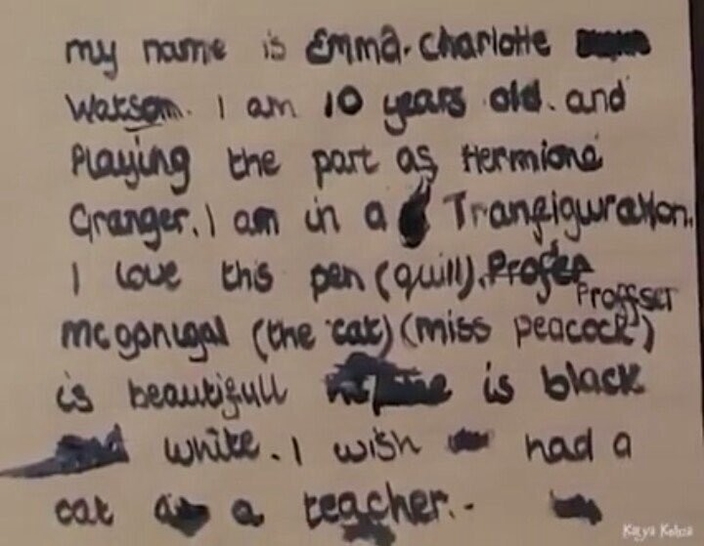 my name is Emma. Charlotte
Watson. I am 10 years old. and
Playing the part as Hermione
Granger. I am in a Tranfiguration.
I love this pen (quill). Profer
Proffser
mcgonigal (the cat) (miss peacock)
is beautifull is black
white. I wish had a
cat a teacher.
Katya Kelsia